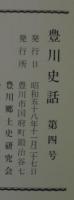 豊川史話 第四号
発行日 昭和五十八年十一月二十七日
発行所 豊川市国府町鍛冶谷七
豊川郷土史研究会